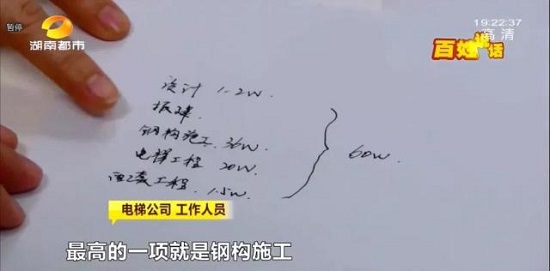 暂停
湖南都市
19:22:37
高清
百姓说话
设计 1-2W.
报建.
钢构施工. 36W
电梯工程 20W
配套工程. 1.5W
60W.
电梯公司 工作人员
最高的一项就是钢构施工